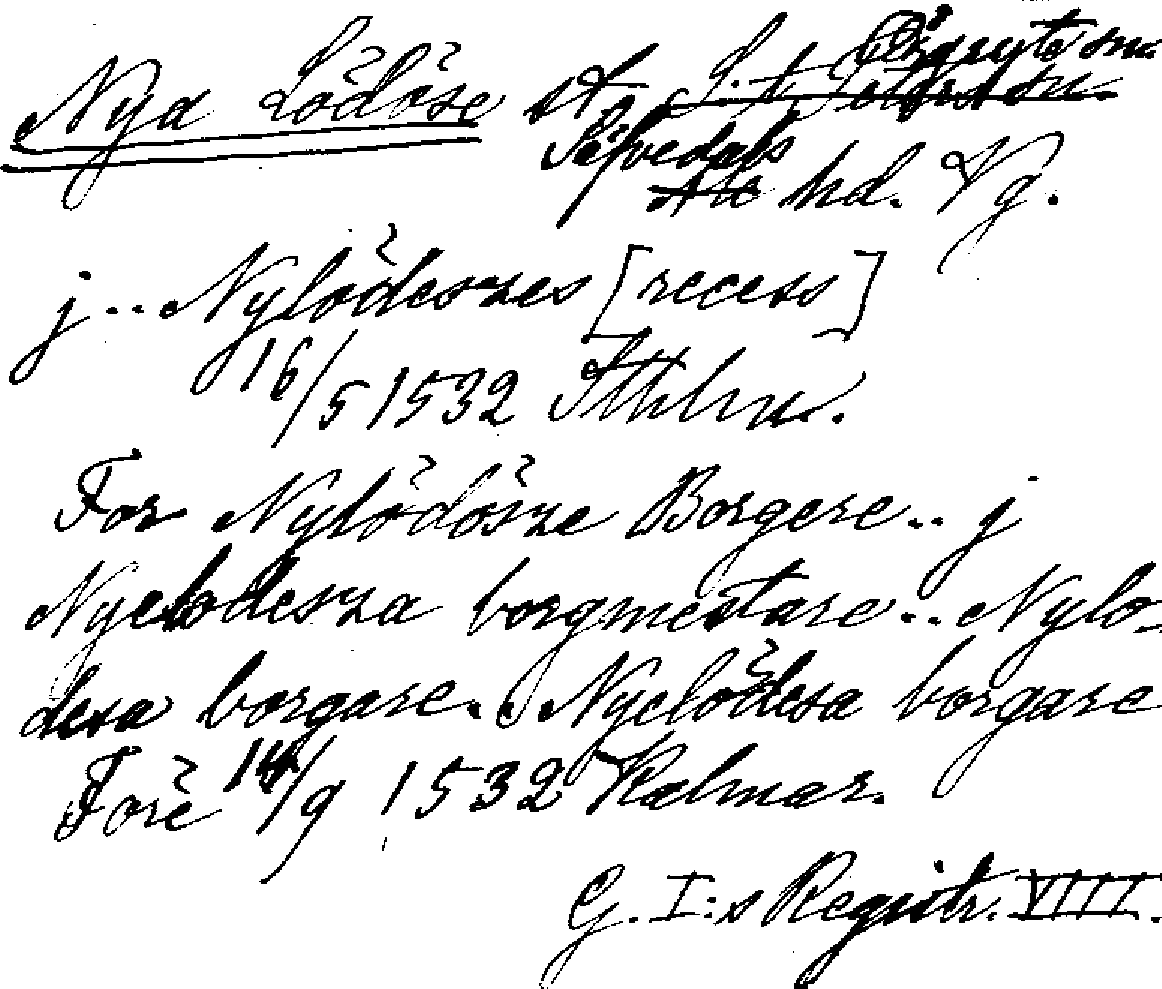 Örgryte sn.
Nya Lödöse st S:t Peders sn.
Säfvedals
Ale hd. Vg.
j .. Nylödeszes [recess]
16/5 1532 Sthlm.
For Nylödösze Borgere .. j
Nyelodesza borgmestare .. Nylo-
desa borgare .. Nyelödesa borgare
Forē 14/9 1532 Kalmar.
G. I:s Registr. VIII.